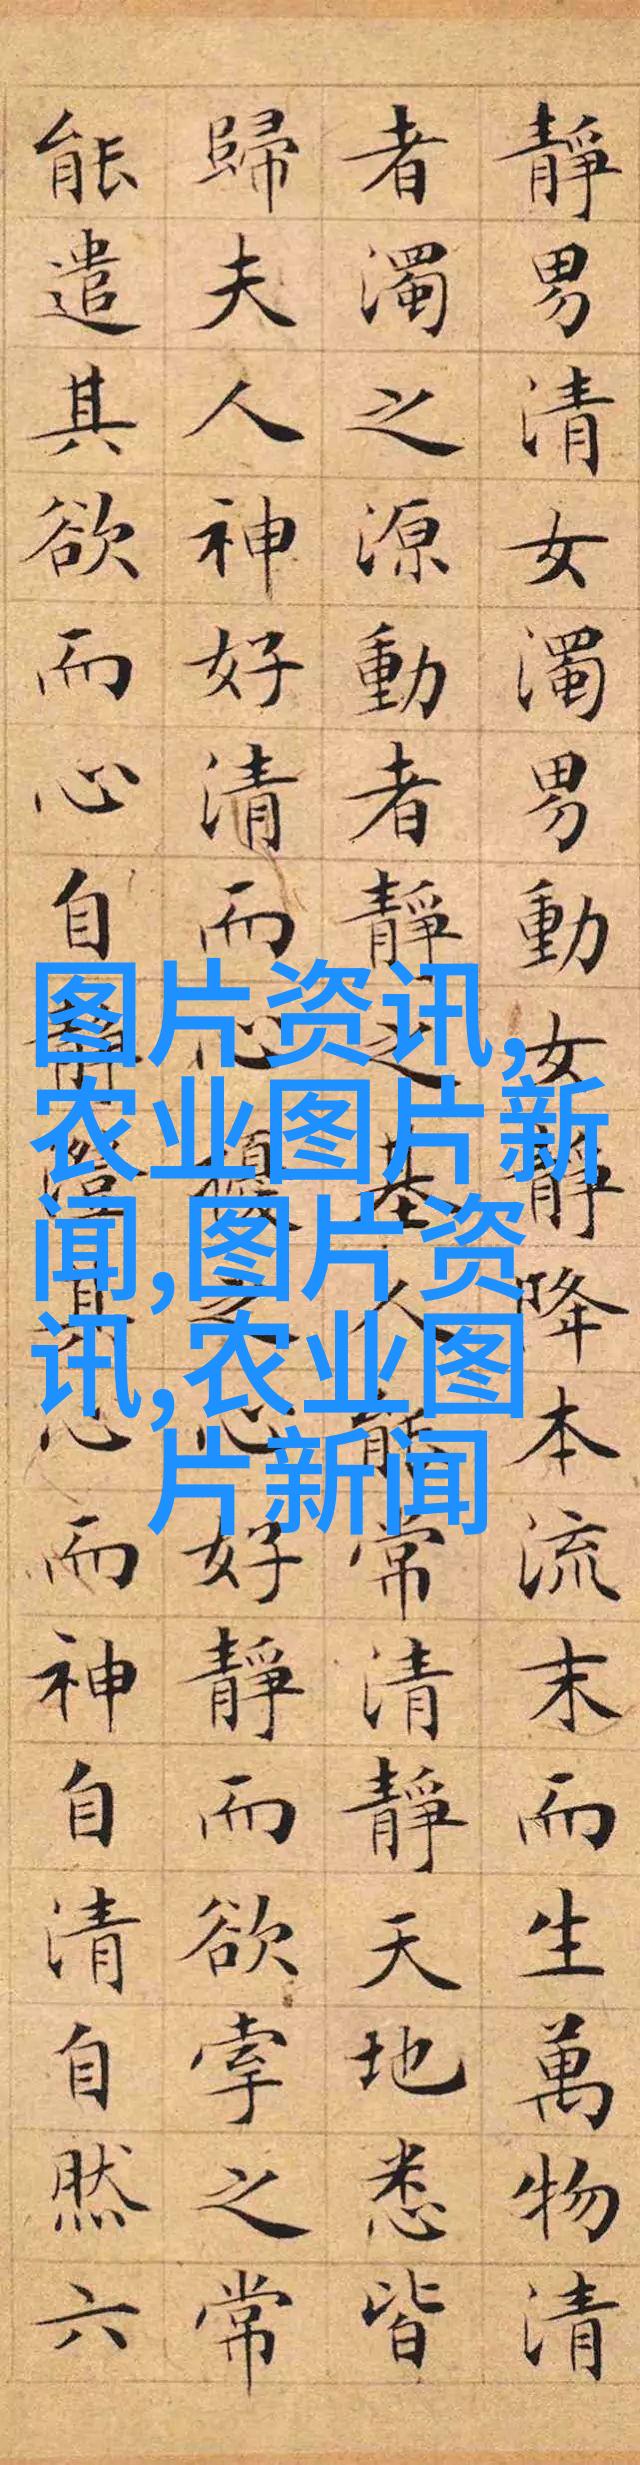 靜男清女濁男動女靜降本流末而生萬物清
者濁之源動者靜之基人能常清靜天地悉皆
歸夫人神好清而心擾之心好靜而欲牽之常
能遣其欲而心自靜澄其心而神自清自然六
图片资讯,
农业图片新
闻,图片资
讯,农业图
片新闻